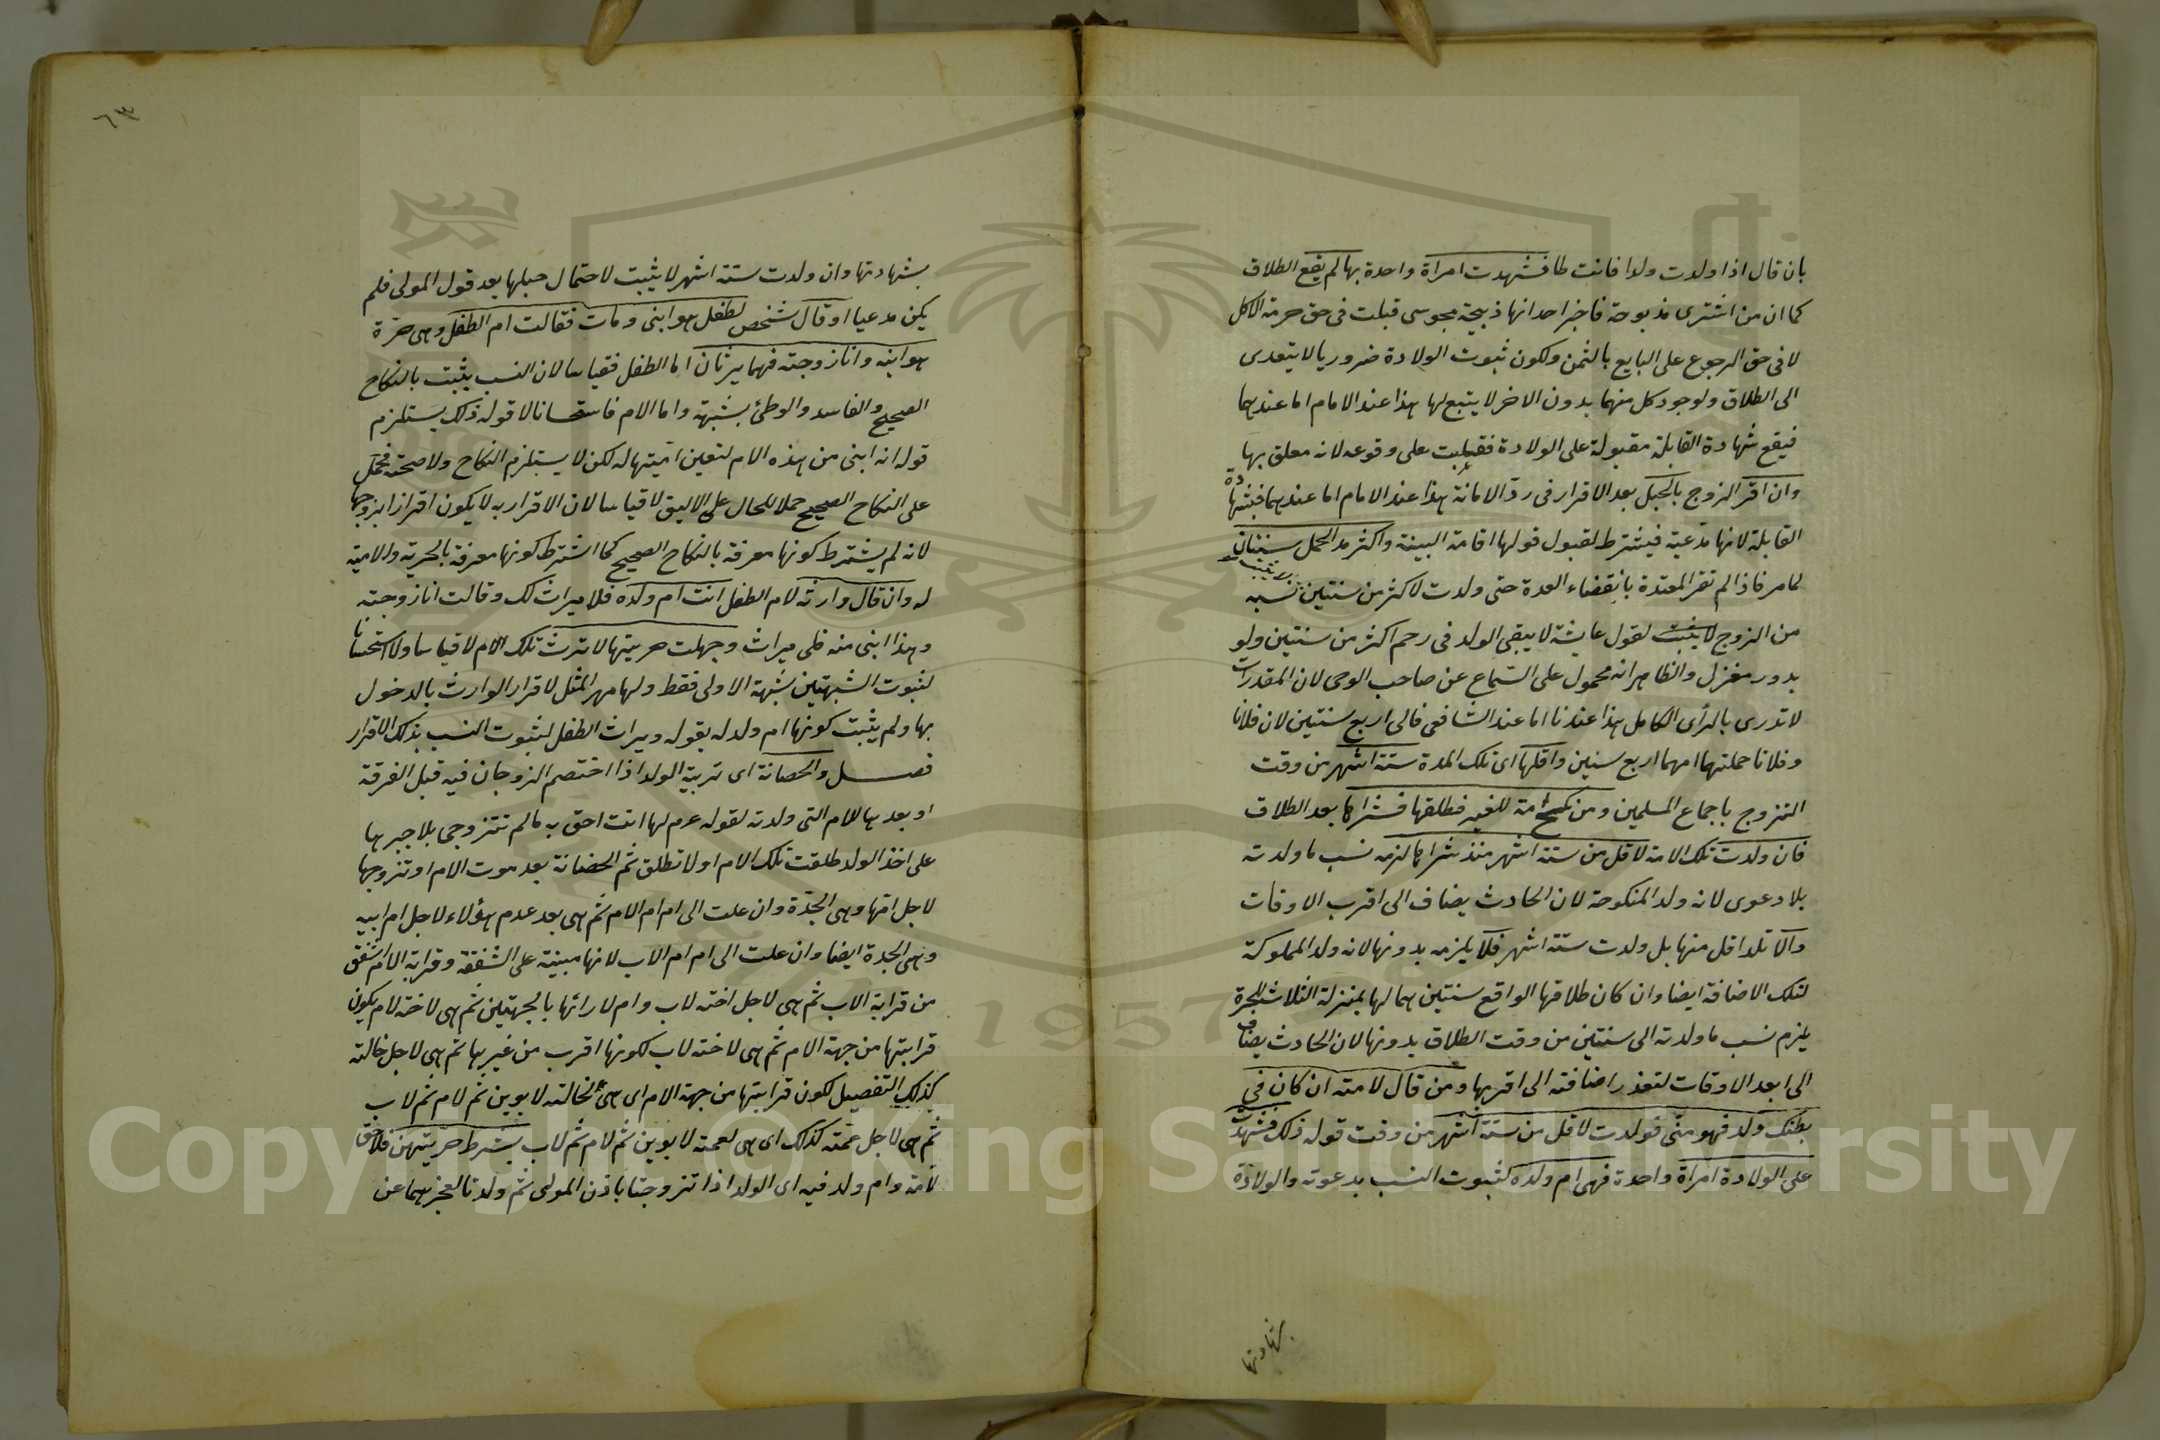 بان قال اذا ولدت ولدا فانت طا فشهدت امرأة واحدة بها لم يقع الطلاق
كما ان من اشترى مذبوحة فاخبر احد انها ذبيحة مجوسى قبلت فى حق حرمة الاكل
لا فى حق الرجوع على البايع بالثمن ولكون ثبوت الولادة ضروريا لا يتعدى
الى الطلاق ولوجود كل منهما بدون الاخر لا يتبع لها هذا عند الامام اما عندهما
فيقع شهادة القابلة مقبولة على الولادة فقبلت على وقوعه لانه معلق بها
وان اقر الزوج بالحبل بعد الاقرار فى رد الامانة هذا عند الامام اما عندهما فبشهادة
القابلة لانها مدعية فيشترط لقبول قولها اقامة البينة واكثر مد الحمل سنتان
لما مر فاذا لم تقر المعتدة بانقضاء العدة حتى ولدت لاكثر من سنتين نسبه
من الزوج لا يثبت لقول عايشة لا يبقى الولد فى رحم اكثر من سنتين ولو
بدور مغزل والظاهر انه محمول على السماع عن صاحب الوحى لان المقدرات
لا تدرى بالرأى الكامل هذا عندنا اما عند الشافعى فالى اربع سنتين لان فلانا
وفلانا حملتهما امهما اربع سنين واقلها اى تلك المدة ستة اشهر من وقت
التزوج باجماع المسلمين ومن نكح أمة للغير فطلقها فشراها بعد الطلاق
فان ولدت تلك الامة لاقل من ستة اشهر منذ شراها لزمه نسب ما ولدته
بلا دعوى لانه ولد المنكوحة لان الحادث يضاف الى اقرب الاوقات
والا تلد اقل منها بل ولدت ستة اشهر فلا يلزمه بدونها لانه ولد المملوكة
لتلك الاضافة ايضا وان كان طلاقها الواقع سنتين هما لها بمنزلة الثلاث للحرة
يلزم نسب ما ولدته الى سنتين من وقت الطلاق بدونها لان الحادث يضاف
الى ابعد الاوقات لتعذر اضافته الى اقربها ومن قال لامته ان كان فى
بطنك ولد فهو منى فولدت لاقل من ستة اشهر من وقت قوله ذلك فشهدت
على الولادة امرأة واحدة فهى ام ولده لثبوت النسب بدعوته والولادة
بشهادتها
٦٣
بشهادتها وان ولدت ستة اشهر لا يثبت لاحتمال حبلها بعد قول المولى فلم
يكن مدعيا او قال شخص لطفل هو ابنى ومات فقالت ام الطفل وهى حرة
هو ابنه وانا زوجته فهما يرثان اما الطفل فقياسا لان النسب يثبت بالنكاح
الصحيح والفاسد والوطئ بشبهة واما الام فاستحسانا لا قوله ذلك يستلزم
قوله انه ابنى من هذه الام لتعين اميتها له لكن لا يستلزم النكاح ولا صحته فحمل
على النكاح الصحيح حملا للحال على الاليق لا قياسا لان الاقرار به لا يكون اقرارا بزوجها
لانه لم يشترط كونها معرفة بالنكاح الصحيح كما اشترط كونها معرفة بالحرية والامية
له وان قال وارثه لام الطفل انت ام ولده فلا ميراث لك وقالت انا زوجته
وهذا ابنى منه فلى ميراث وجهلت حريتها لا ترث تلك الام لا قياسا ولا استحسانا
لثبوت الشبهتين بشبهة الاولى فقط ولها مهر المثل لاقرار الوارث بالدخول
بها ولم يثبت كونها ام ولد له بقوله ويراث الطفل لثبوت النسب بذلك الاقرار
فصل والحضانة اى تربية الولد اذا اختصم الزوجان فيه قبل الفرقة
او بعدها للام التى ولدته لقوله عرم لها انت احق به ما لم تتزوجى بلا جبرها
على اخذ الولد طلقت تلك الام او لا تطلق ثم الحضانة بعد موت الام او تزوجها
لاجل امها وهى الجدة وان علت الى ام ام الام ثم هى بعد عدم هؤلاء لاجل ام ابيه
وهى الجدة ايضا وان علت الى ام ام الاب لانها مبنية على الشفقة وقرابة الام اشفق
من قرابة الاب ثم هى لاجل اخته لاب وام لارائها بالجهتين ثم هى لاخته لام يكون
قرابتها من جهة الام ثم هى لاخته لاب لكونها اقرب من غيرها ثم هى لاجل خالته
كذلك التفصيل لكون قرابتها من جهة الام اى هى لخالته لابوين ثم لام ثم لاب
ثم هى لاجل عمته كذلك اى هى لعمته لابوين ثم لام ثم لاب بشرط حريتهن فلا حق
لامة وام ولد فيه اى الولد اذا تزوجتا باذن المولى ثم ولدتا لعجزهما عن
Copyright © King Saud University
1957